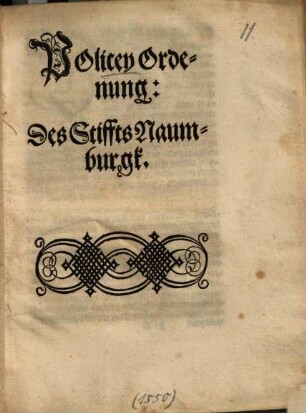 11.
POlicey Orde-
nung:
Des Stiffts Naum-
burgk.
(1550)